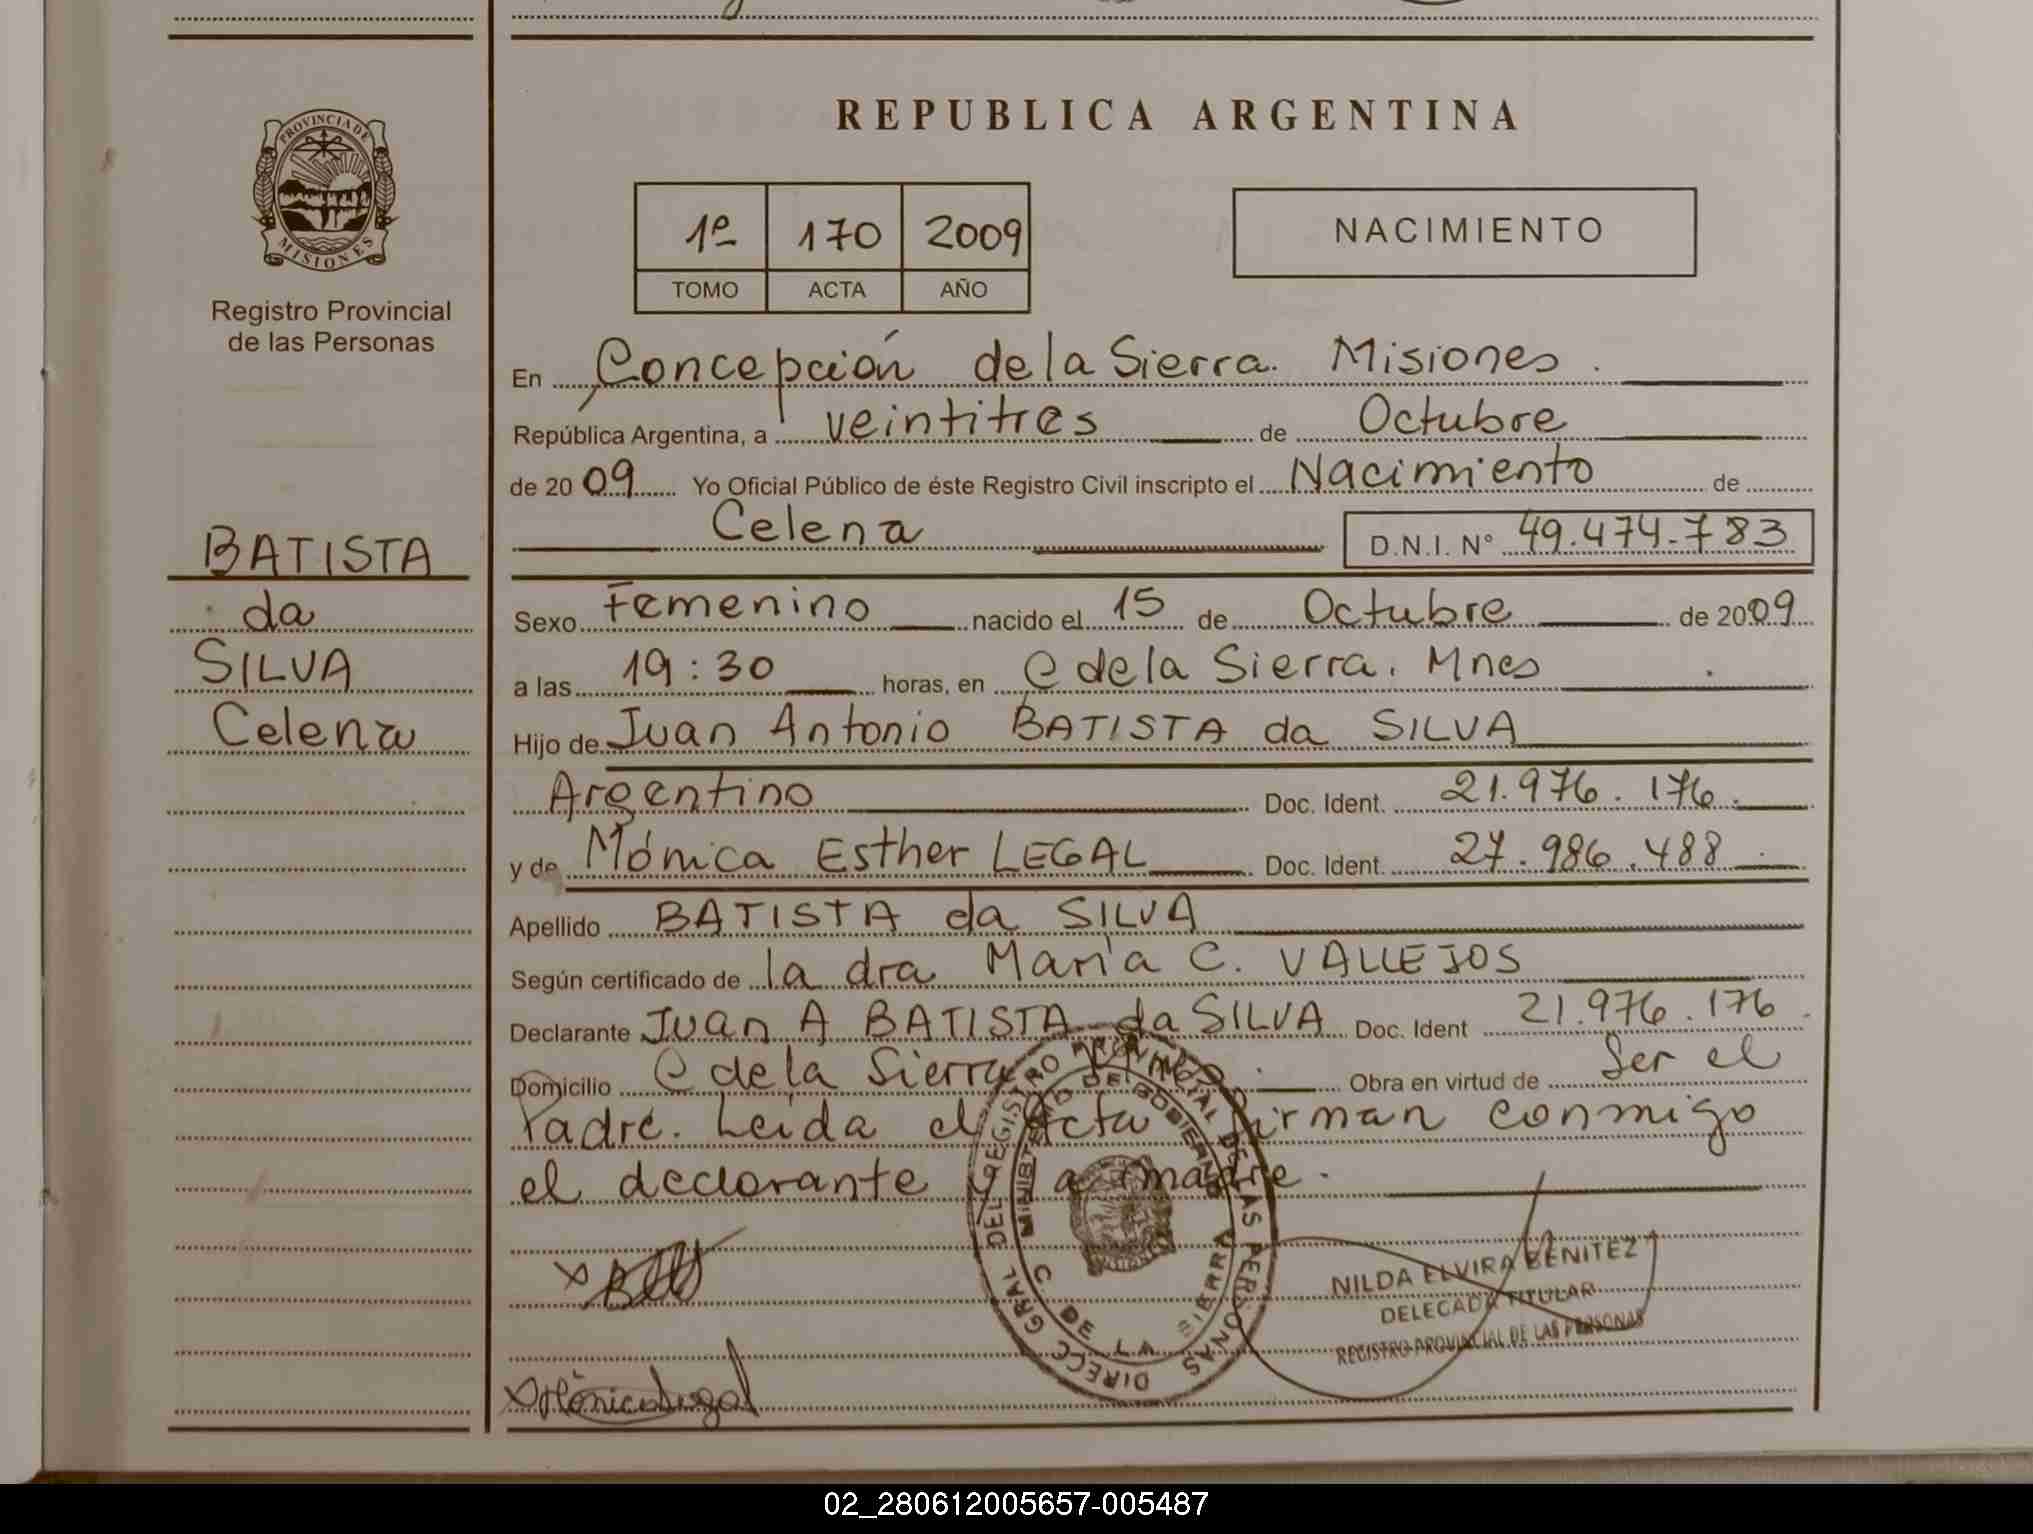 PROVINCIA DE
MISIONES
Registro Provincial
de las Personas
BATISTA
da
SILVA
Celena
REPUBLICA ARGENTINA
1º 170 2009
TOMO ACTA AÑO
NACIMIENTO
En Concepción de la Sierra. Misiones.
República Argentina, a veintitres de Octubre
de 2009 Yo Oficial Público de éste Registro Civil inscripto el Nacimiento de
Celena D.N.I. N° 49.474.783
Sexo Femenino nacido el 15 de Octubre de 2009
a las 19:30 horas, en C de la Sierra. Mnes.
Hijo de Juan Antonio BATISTA da SILVA
Argentino Doc. Ident. 21.976.176.
y de Mónica Esther LEGAL Doc. Ident. 27.986.488
Apellido BATISTA da SILVA
Según certificado de la dra María C. VALLEJOS
Declarante Juan A BATISTA da SILVA Doc. Ident 21.976.176.
Domicilio C de la Sierra Mnes. Obra en virtud de Ser el
Padre. Leída el Acta firman conmigo
el declarante y la madre.
DIRECC GRAL DEL REGISTRO PROVINCIAL DE LAS PERSONAS
MINISTERIO DE GOBIERNO
C DE LA SIERRA
NILDA ELVIRA BENITEZ
DELEGADA TITULAR
REGISTRO PROVINCIAL DE LAS PERSONAS
Mónica Legal
02_280612005657-005487